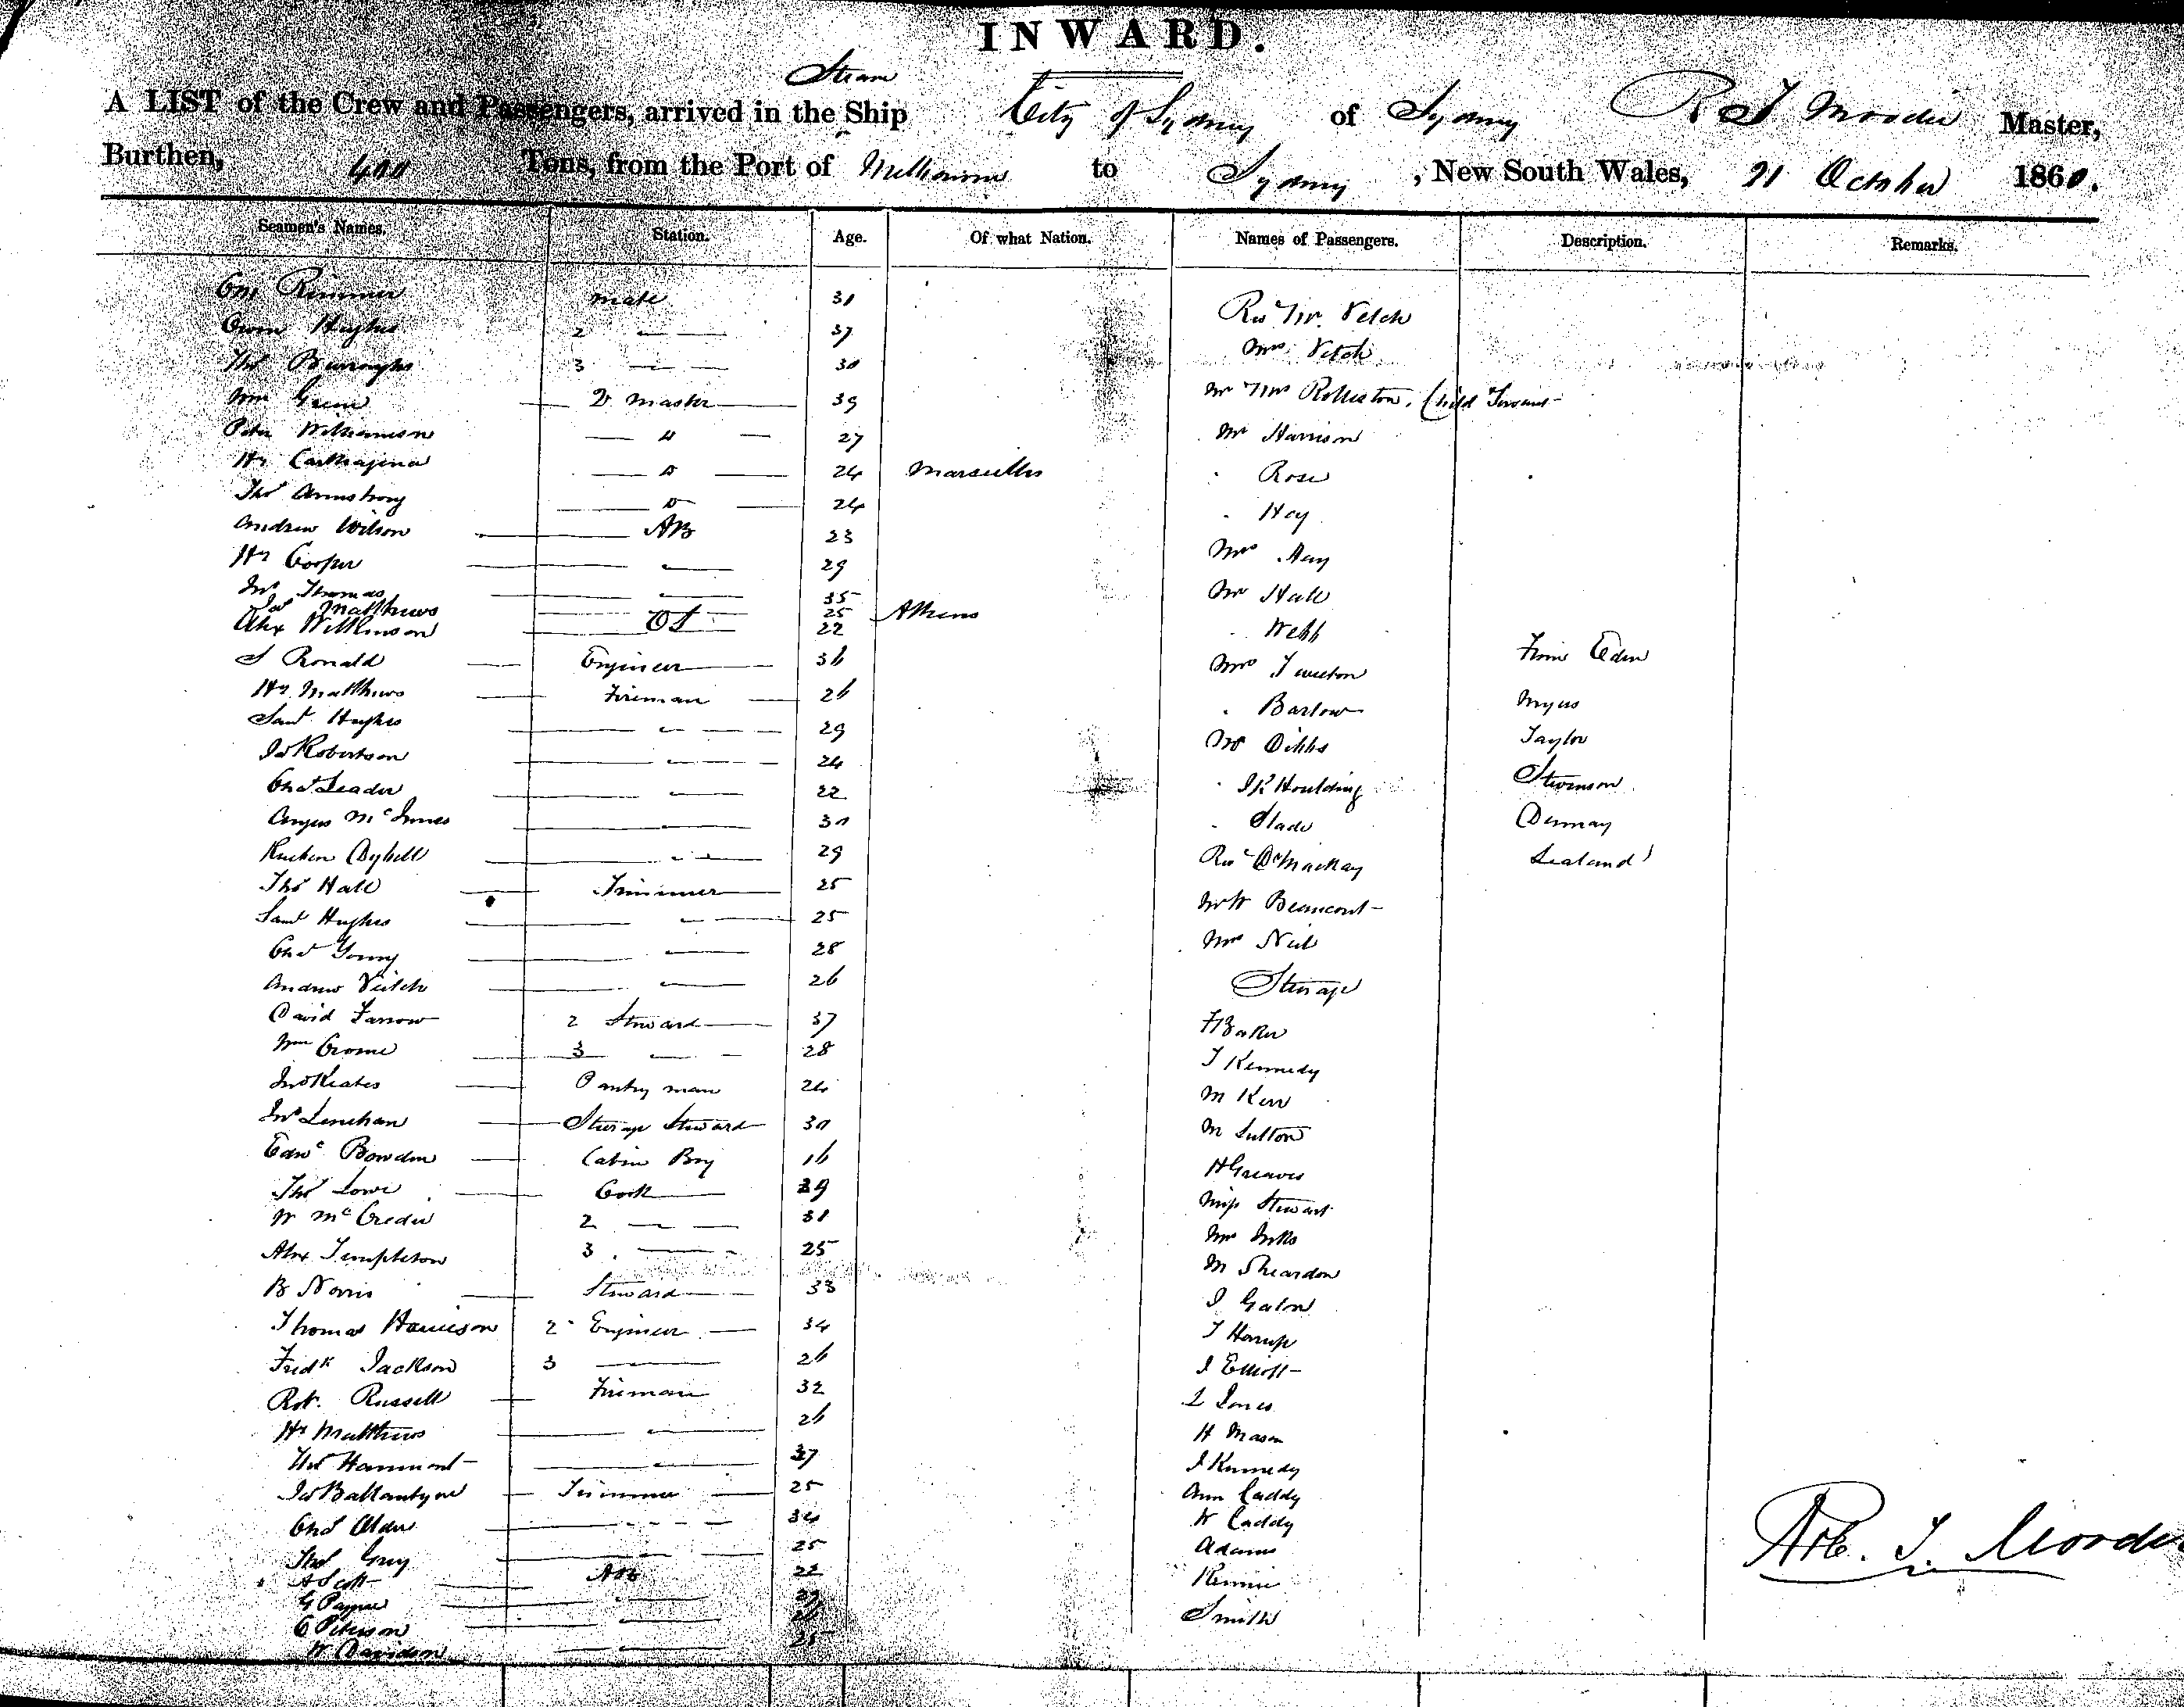 INWARD.
Steam
A LIST of the Crew and Passengers, arrived in the Ship City of Sydney of Sydney R T Moodie Master,
Burthen, 400 Tons, from the Port of Melbourne to Sydney, New South Wales, 21 October 1860.
Seamen's Names. Station. Age. Of what Nation. Names of Passengers. Description. Remarks.
Rimmer mate 31
Owen Hughes 2 — 37
Thos Burroughs 3 — — 30
Wm Q master 39
Peter Williamson — " — 27
Hy Carthagena — D — 24 Marseilles
Thos Armstrong — D — 24
Andrew Wilson AB 23
Hy Cooper — 29
Jno Thomas — 35
Matthews — 25 Athens
Alex Wilkinson OS 22
S Ronald Engineer 36
Hy Matthews Fireman 26
Saml Hughes — 29
Jas Robertson — 24
Chas Leader — 22
Angus McInnes — 30
— 29
Thos Hall Trimmer 25
Saml Hughes — 25
Chas Young — 28
Andrew Veitch — 26
David Farrow 2 Steward 37
Wm Crome 3 — — 28
Jno Keates Pantry man 24
Jno Lenehan Steerage Steward 30
Edwd Bowden Cabin Boy 16
Thos Lowe Cook 39
W McCredie 2 — — 31
Alex Templeton 3 — 25
B Norris Steward 33
Thomas Harrison 2 Engineer 34
Fredk Jackson 3 — 26
Rob. Russell Fireman 32
Hy Matthews — 26
Hammond — 37
Jas Ballantyne Trimmer 25
Chas Alder — 34
Thos Grey — 25
A Scott AB 22
G Payne —
C Peterson —
W Davidson — 25
Revd Mr. Veitch
Mrs Veitch
Mr Mrs Rolleston, Child Servant
Mr Harrison
" Rose
" Hay
Mrs Hay
Mr Hall
" Webb
Mrs Tweeton
" Barlow
Mr Dibbs
" J R Houlding
" Slade
Revd Dr Mackay
Mr W Beaumont
Mrs Neil
Steerage
F Baker
T Kennedy
M Kerr
M Sutton
H Greaves
Miss Stewart
Mrs Inks
M Sheardon
J Galon
T Harrup
J Elliott
L Jones
H Mason
J Kennedy
Ann Caddy
W Caddy
Adams
Rennie
Smith
From Eden
Myers
Taylor
Stevenson
Dermay
Sealand
Rob. T. Moodie